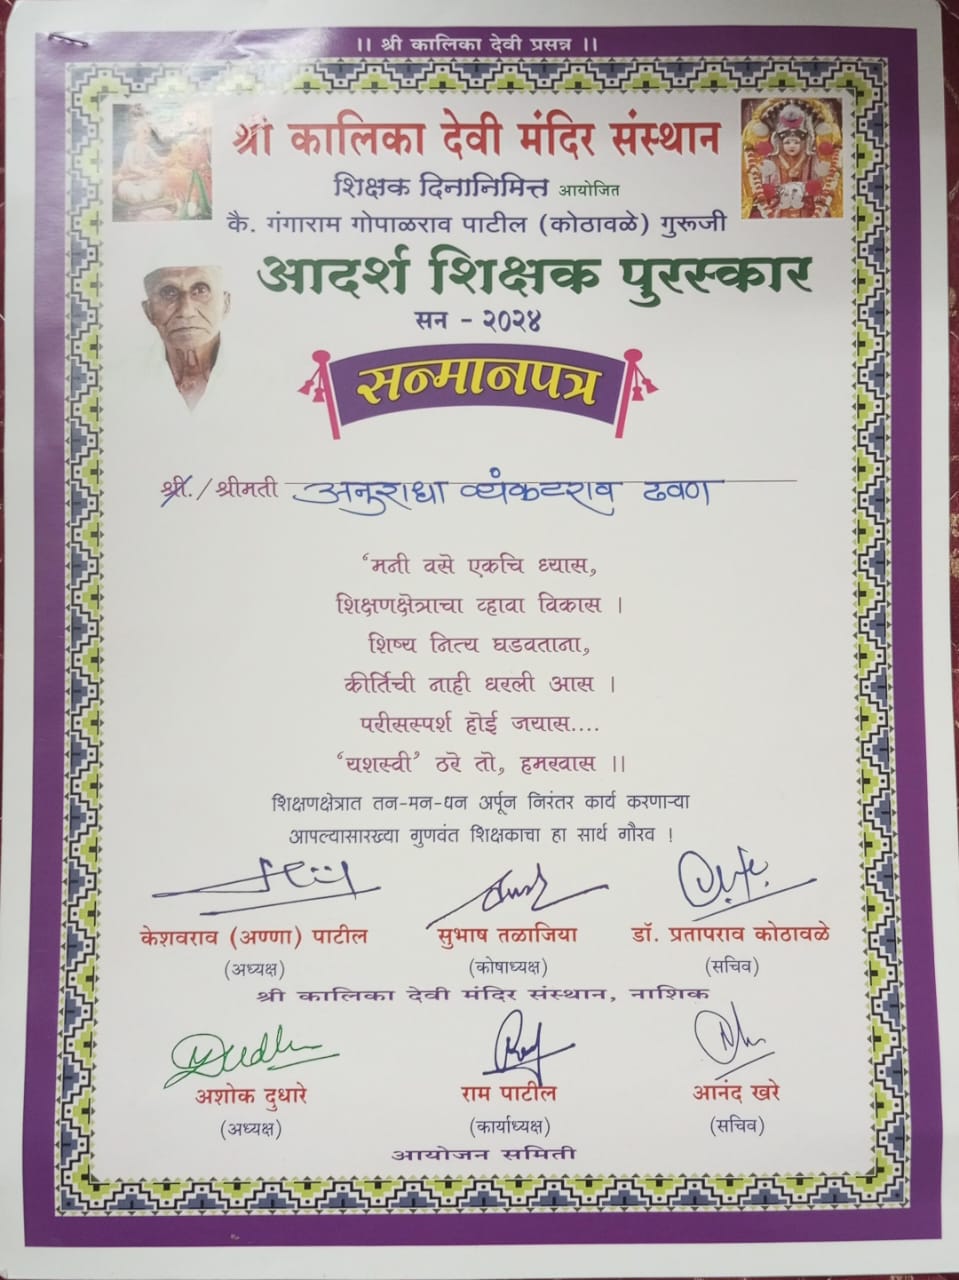 ।। श्री कालिका देवी प्रसन्न ।।
श्री कालिका देवी मंदिर संस्थान
शिक्षक दिनानिमित्त आयोजित
कै. गंगाराम गोपाळराव पाटील (कोठावळे) गुरूजी
आदर्श शिक्षक पुरस्कार
सन - २०२४
सन्मानपत्र
श्री./श्रीमती अनुराधा व्यंकटराव ढवण
‘मनी वसे एकचि ध्यास,
शिक्षणक्षेत्राचा व्हावा विकास ।
शिष्य नित्य घडवताना,
कीर्तिची नाही धरली आस ।
परीसस्पर्श होई जयास....
‘यशस्वी’ ठरे तो, हमखास ।।
शिक्षणक्षेत्रात तन-मन-धन अर्पून निरंतर कार्य करणाऱ्या
आपल्यासारख्या गुणवंत शिक्षकाचा हा सार्थ गौरव !
केशवराव (अण्णा) पाटील सुभाष तळाजिया डॉ. प्रतापराव कोठावळे
(अध्यक्ष) (कोषाध्यक्ष) (सचिव)
श्री कालिका देवी मंदिर संस्थान, नाशिक
अशोक दुधारे राम पाटील आनंद खरे
(अध्यक्ष) (कार्याध्यक्ष) (सचिव)
आयोजन समिती